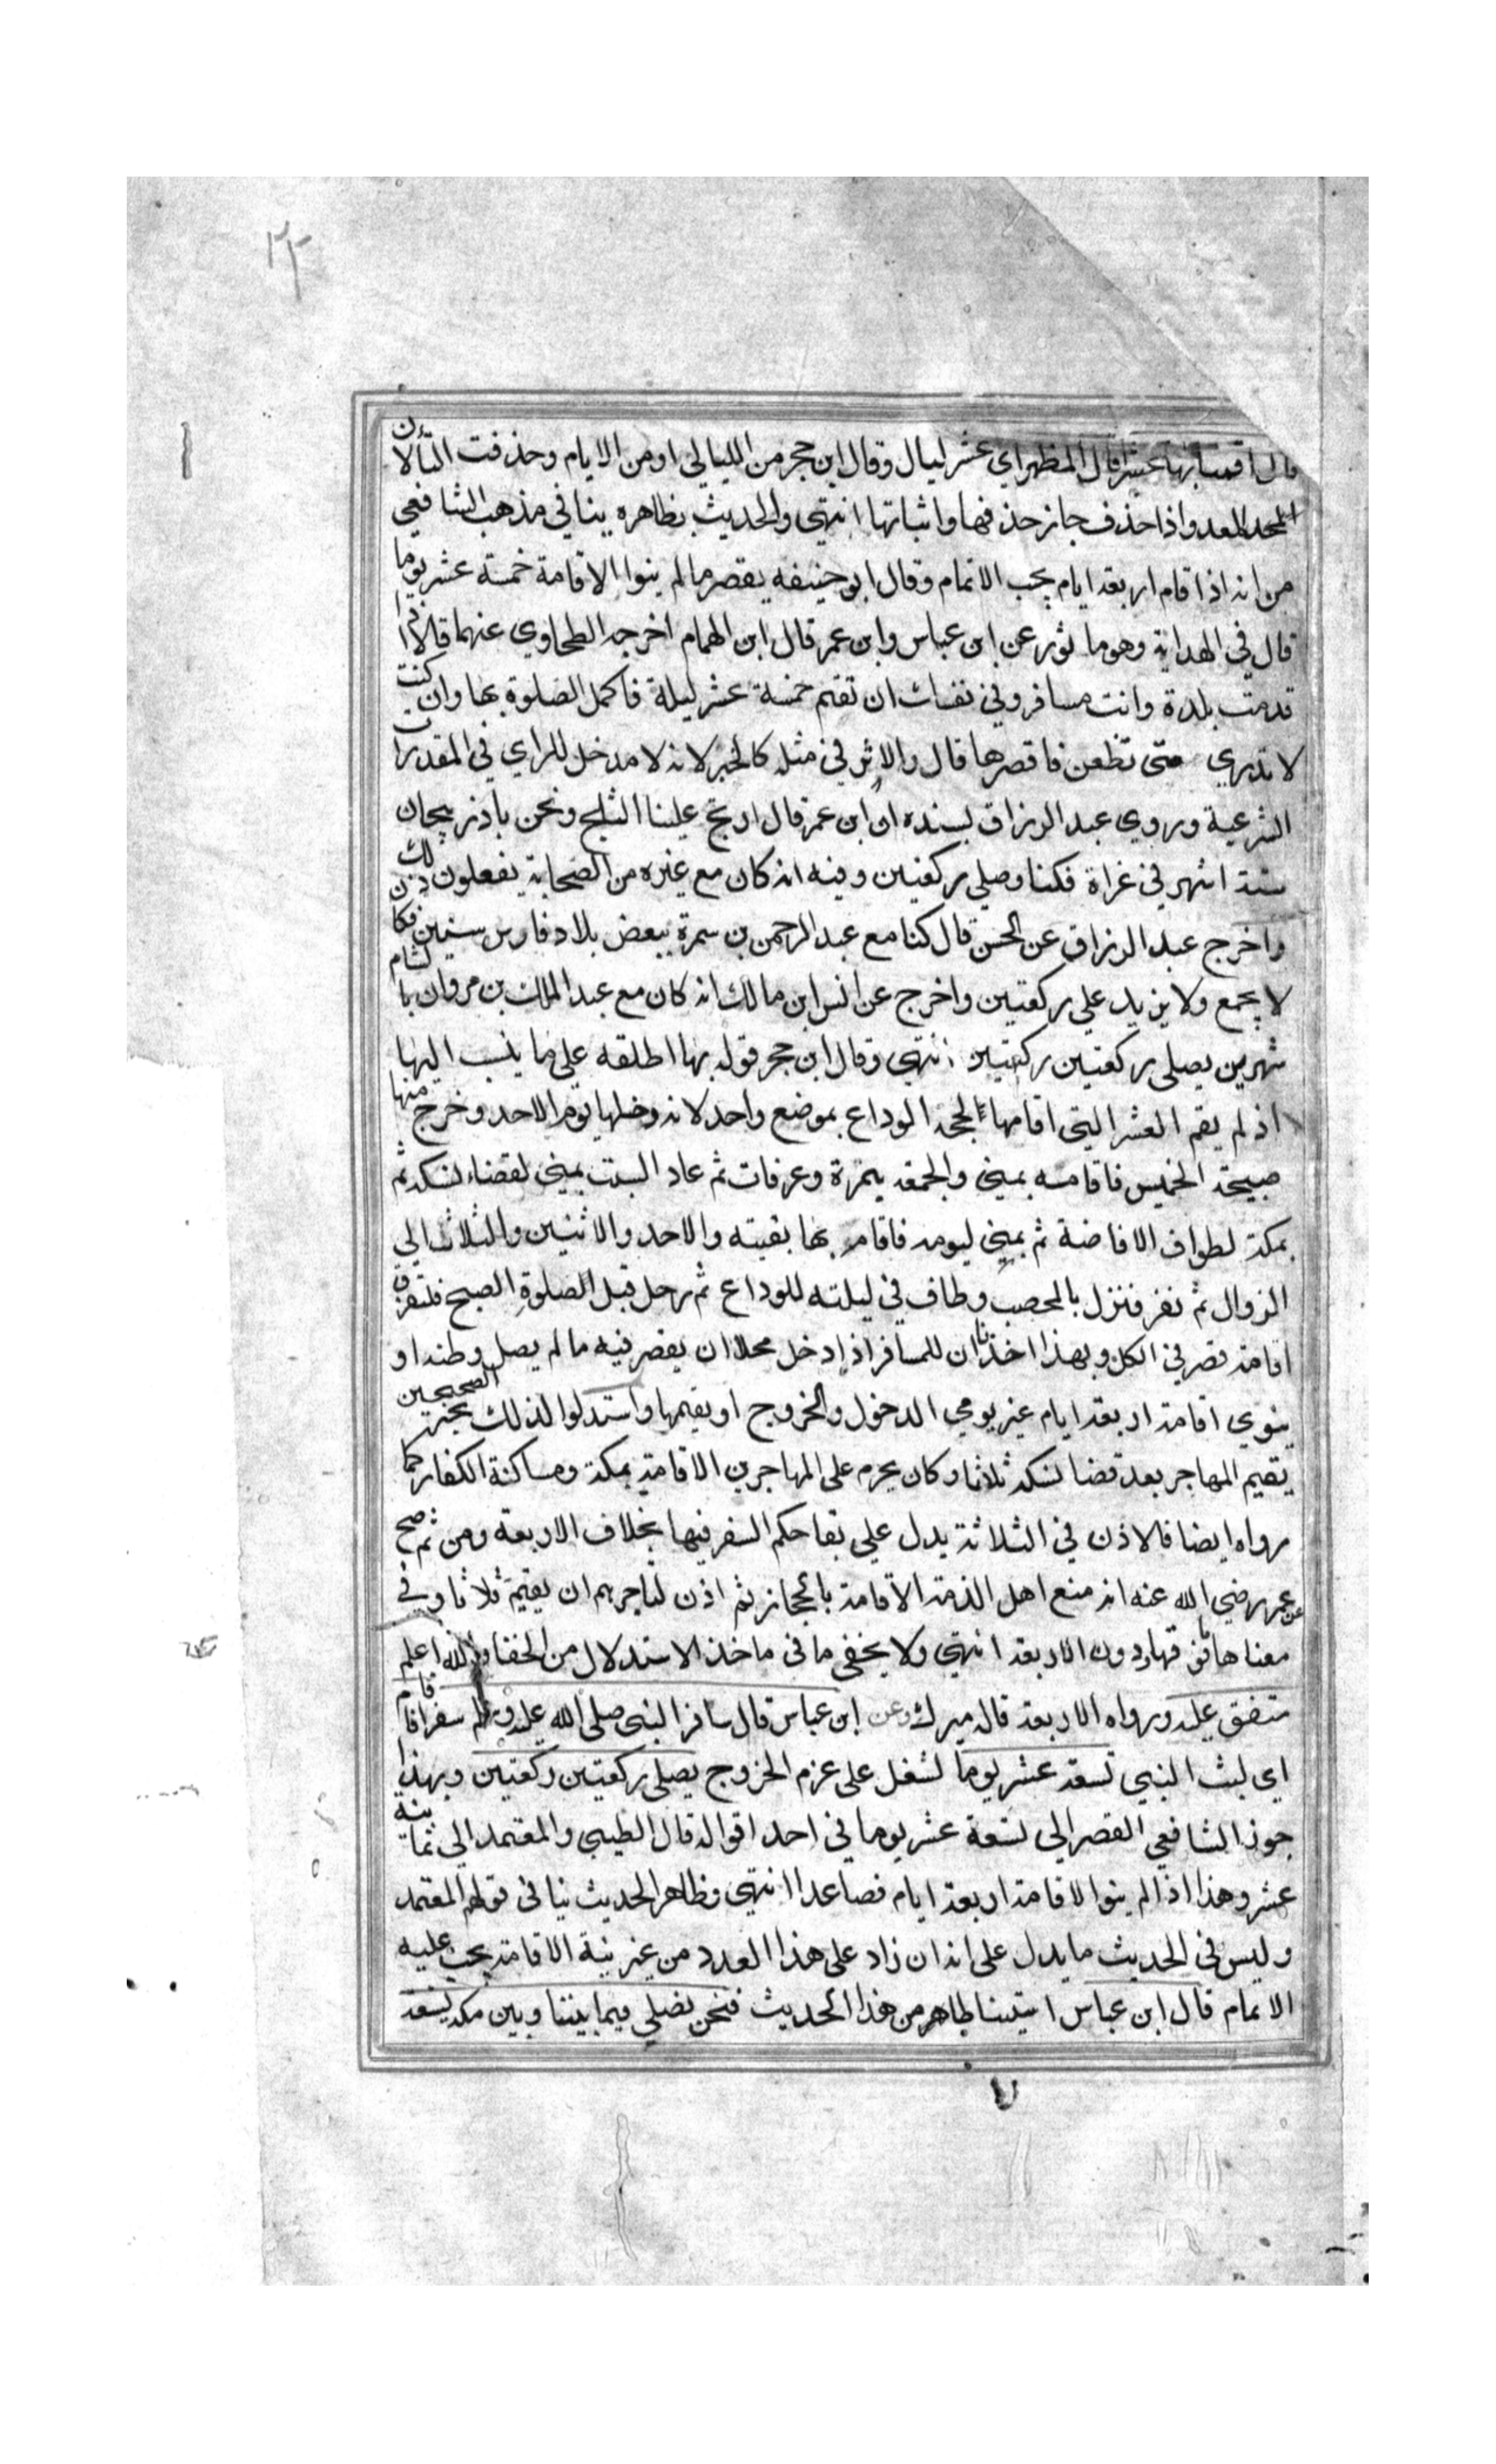 ٢٢
قال اقمنا بها عشرا قال المظهر اي عشر ليال وقال ابن حجر من الليالي او من الايام وحذفت التا لان
المعدود اذا حذف جاز حذفها واثباتها انتهي والحديث بظاهره ينافي مذهب الشافعي
من انه اذا قام اربعة ايام يجب الاتمام وقال ابو حنيفه يقصر ما لم ينوا الاقامة خمسة عشر يوما
قال في الهداية وهو ما ثور عن ابن عباس وابن عمر قال ابن الهمام اخرجه الطحاوي عنهما قالا اذا
قدمت بلدة وانت مسافر وفي نفسك ان تقيم خمسة عشر ليلة فاكمل الصلوة بها وان كنت
لا تدري متى تظعن فاقصرها قال والاثر في مثله كالخبر لانه لا مدخل للراي في المقدرات
الشرعية وروي عبد الرزاق بسنده ان ابن عمر قال ارتج علينا الثلج ونحن باذربيجان
ستة اشهر في غزاة فكنا وصلي ركعتين وفيه انه كان مع غيره من الصحابة يفعلون ذلك
واخرج عبد الرزاق عن الحسن قال كنا مع عبد الرحمن بن سمرة ببعض بلاد فارس سنين فكان
لا يجمع ولا يزيد علي ركعتين واخرج عن انس ابن مالك انه كان مع عبد الملك بن مروان بالشام
شهرين يصلي ركعتين ركعتين انتهي وقال ابن حجر قوله بها اطلقه علي ما ينسب اليها
اذ لم يقم العشر التي اقامها لحجة الوداع بموضع واحد لانه دخلها يوم الاحد وخرج منها
صبيحة الخميس فاقامته بمني والجمعة بنمرة وعرفات ثم عاد السبت بمني لقضاء نسكه ثم
بمكة لطواف الافاضة ثم بمني ليومه فاقام بها بقيته والاحد والاثنين والثلاث الي
الزوال ثم نفر فنزل بالمحصب وطاف في ليلته للوداع ثم رحل قبل الصلوة الصبح فلتفرق
اقامته قصر في الكل وبهذا اخذنا ان للمسافر اذا دخل محلا ان يقصر فيه ما لم يصل وطنه او
ينوي اقامة اربعة ايام غير يومي الدخول والخروج او يقيمها واستدلوا لذلك بخبر الصحيحين
يقيم المهاجر بعد قضا نسكه ثلاثا وكان يحرم علي المهاجرين الاقامة بمكة ومساكنة الكفار كما
رواه ايضا فالاذن في الثلاثة يدل علي بقا حكم السفر فيها بخلاف الاربعة ومن ثم صح
عن عمر رضي الله عنه انه منع اهل الذمة الاقامة بالحجاز ثم اذن لتاجرهم ان يقيم ثلاثا وفي
معناها ما فوقها دون الاربعة انتهي ولا يخفى ما في ماخذ الاستدلال من الخفا والله اعلم
متفق عليه ورواه الاربعة قاله ميرك وعن ابن عباس قال سافر النبي صلى الله عليه وسلم سفرا فاقام
اي لبث النبي تسعة عشر يوما لشغل على عزم الخروج يصلي ركعتين ركعتين وبهذا
جوز الشافعي القصر الي تسعة عشر يوما في احد اقواله قال الطيبي والمعتمد الي ثمانية
عشر وهذا اذا لم ينوا الاقامة اربعة ايام فصاعدا انتهي وظاهر الحديث ينافي قولهم المعتمد
وليس في الحديث ما يدل على انه ان زاد على هذا العدد من غير نية الاقامة يجب عليه
الاتمام قال ابن عباس من هذا الحديث فنحن نصلي فيما بيننا وبين مكة تسعة